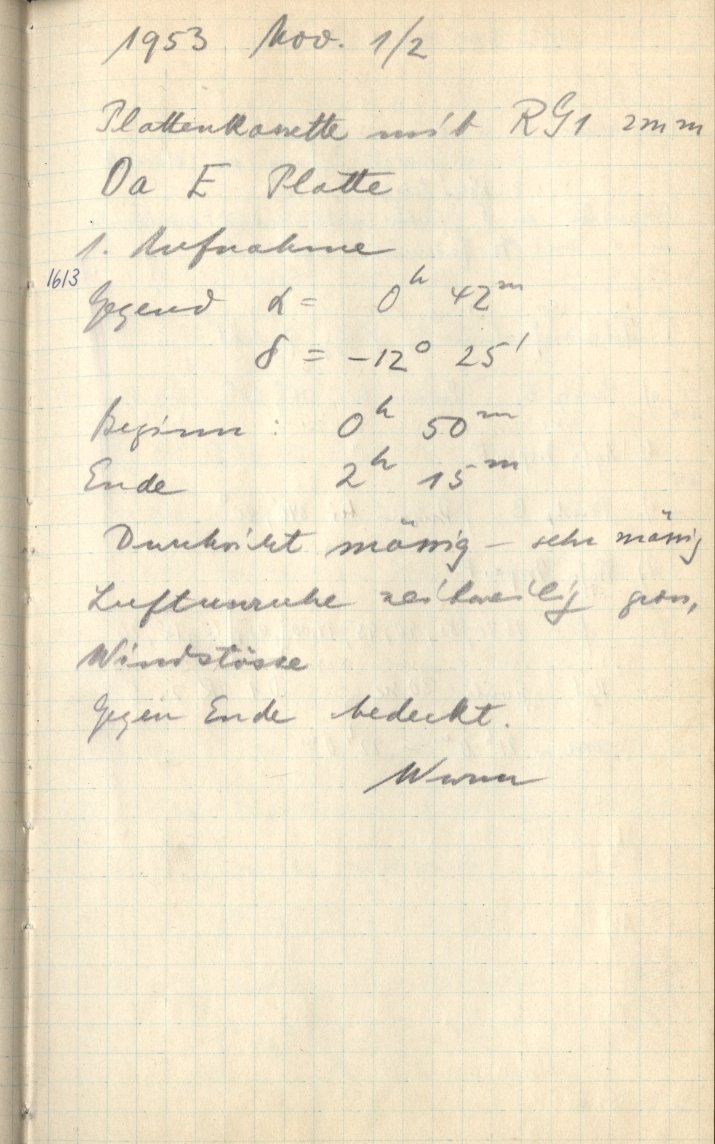 1953 Nov. 1/2
Plattenkassette mit RG1 2mm
Oa E Platte
1. Aufnahme
1613
Gegend α = 0h 42m
δ = -12° 25'
Beginn: 0h 50m
Ende 2h 15m
Durchsicht mässig – sehr mässig
Luftunruhe zeitweilig gross,
Windstösse
Gegen Ende bedeckt.